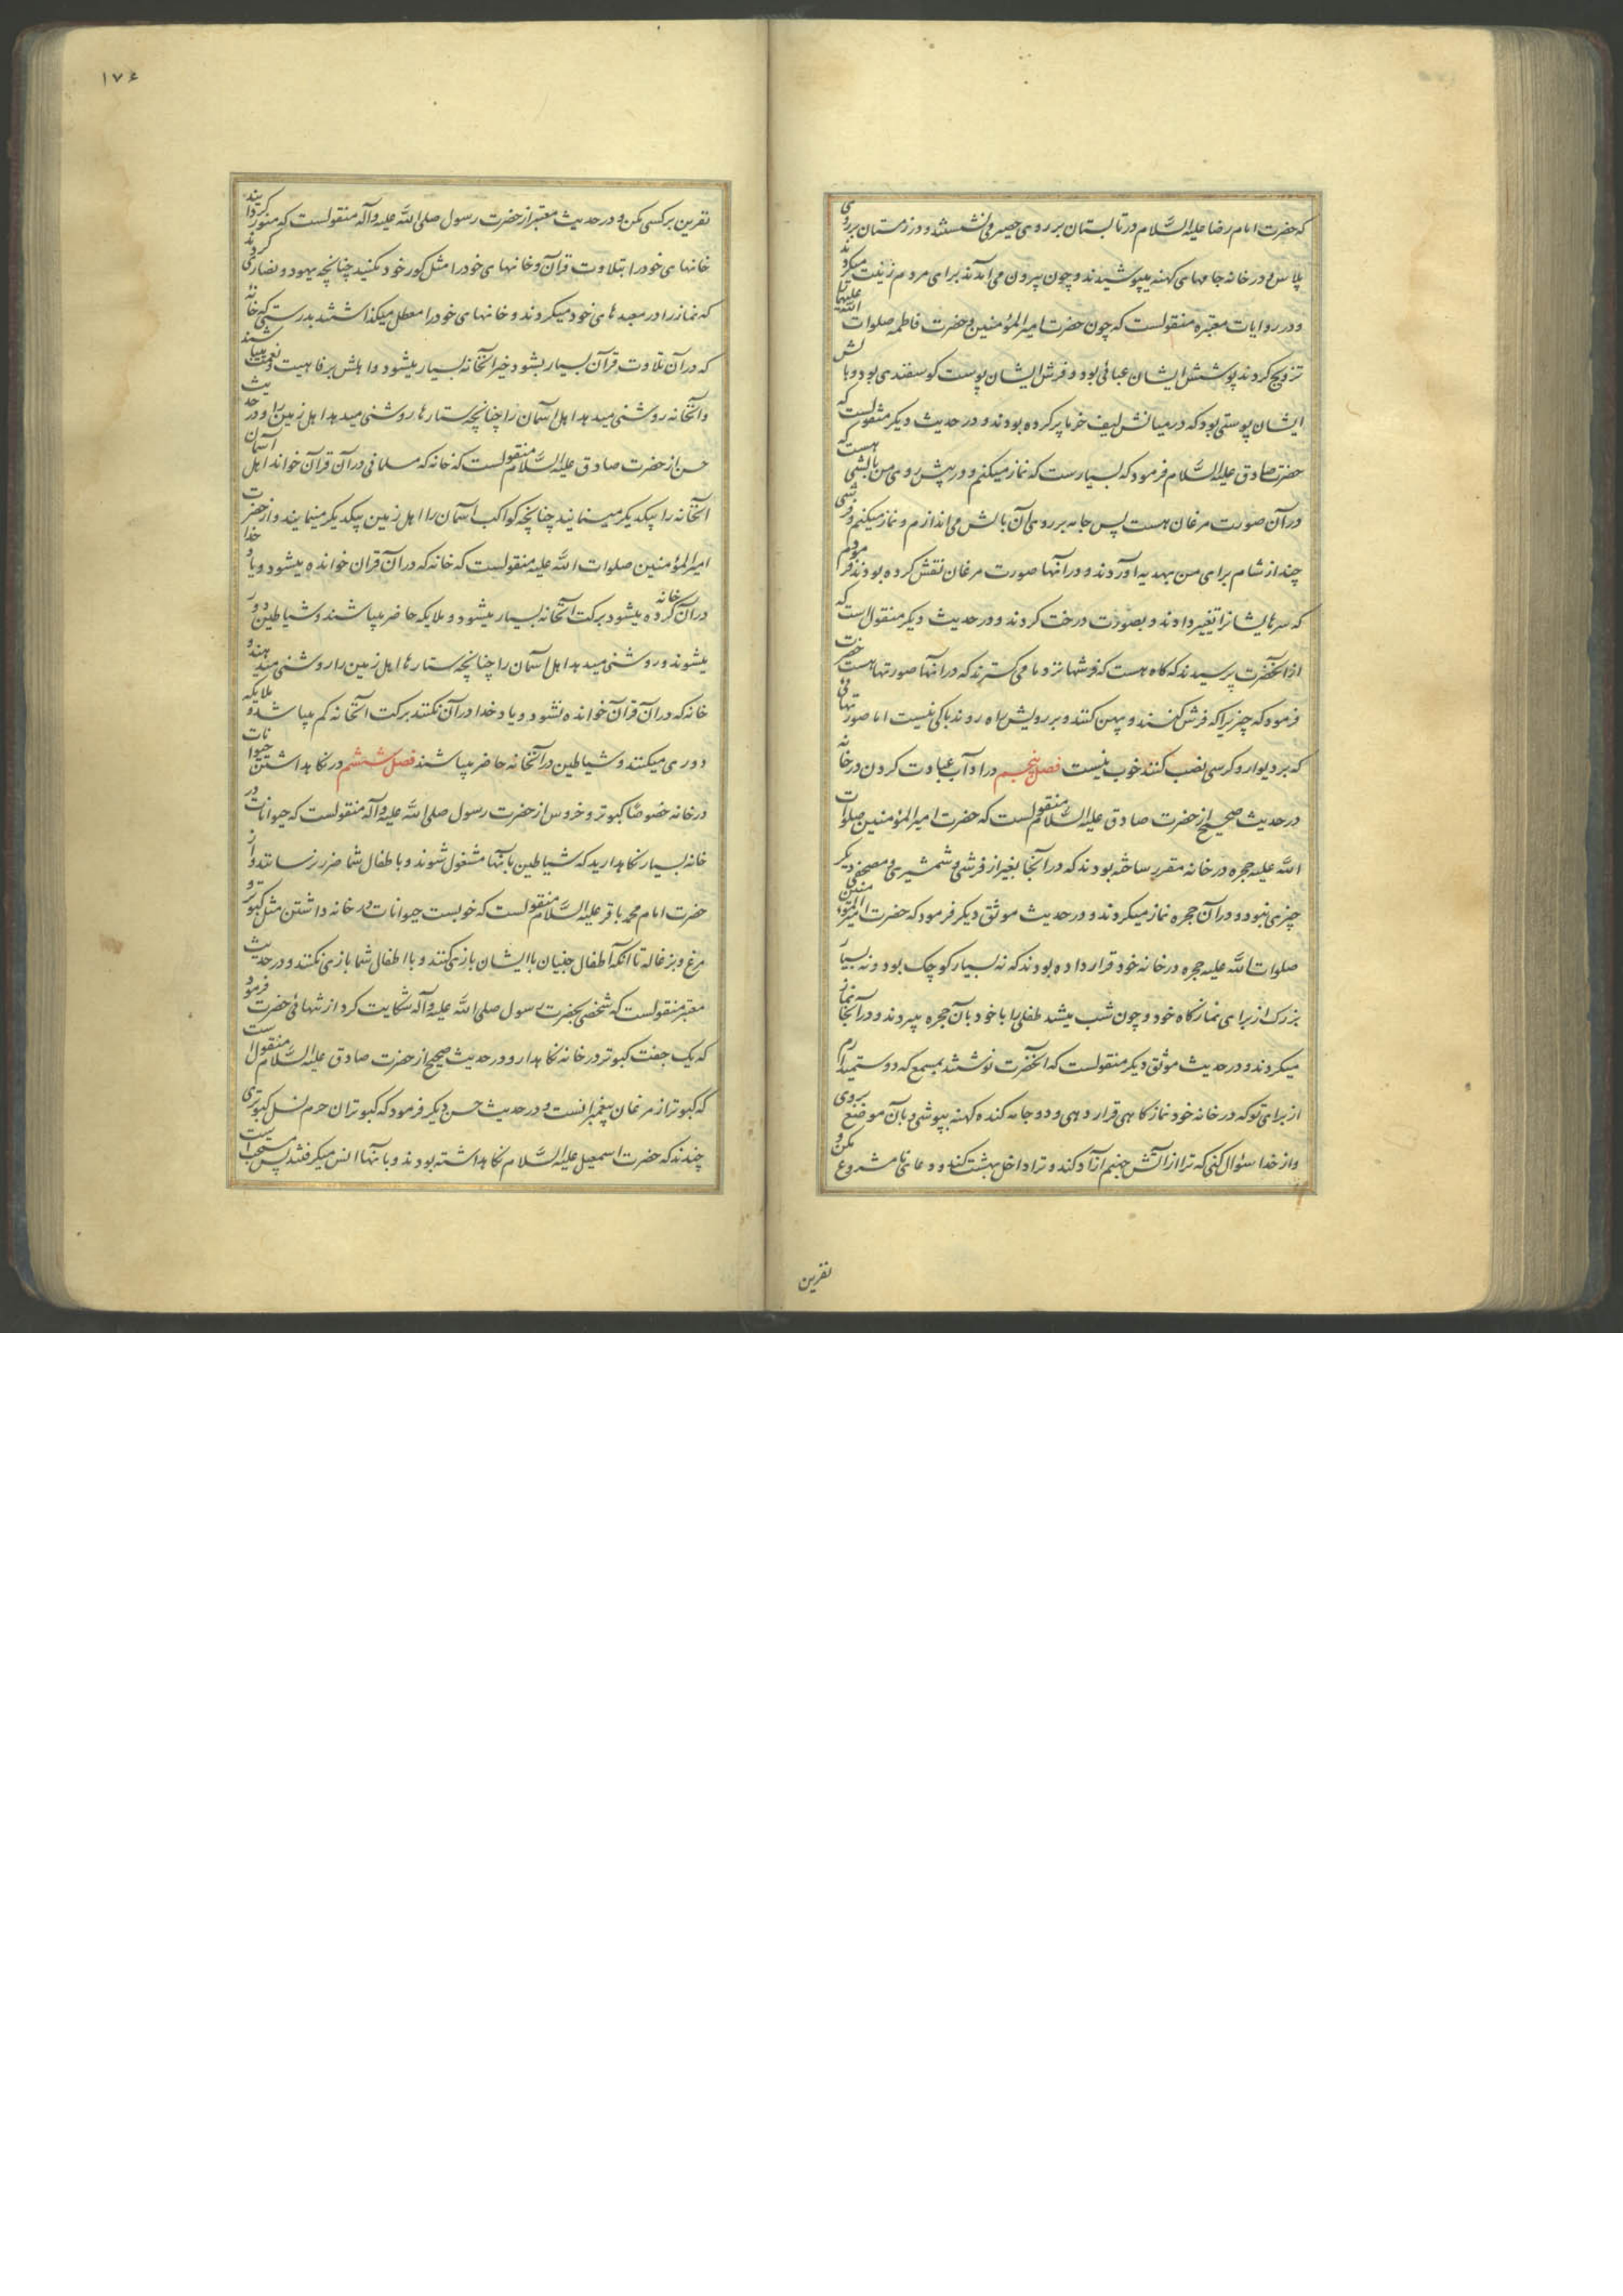 که حضرت امام رضا علیه السَّلام در تابستان بر روی حصیری نشستند و در زمستان بر روی
پلاس و در خانه جامهای کهنه میپوشیدند و چون بیرون می آمدند برای مردم زینت میکردند
و در روایات معتبره منقولست که چون حضرت امیر المؤمنین و حضرت فاطمه صلوات الله علیهما
تزویج کردند پوشش ایشان عبائی بود و فرش ایشان پوست کوسفندی بود و بالش
ایشان پوستی بود که در میانش لیف خرما پر کرده بودند و در حدیث دیکر منقولست که
حضرت صادق علیه السَّلام فرمود که بسیارست که نماز میکنم و در پیش روی من بالشی هست که
در آن صورت مرغان هست پس جامه بر روی آن بالش می اندازم و نماز میکنم و فرشی
چند از شام برای من بهدیه آوردند و در آنها صورت مرغان نقش کرده بودند فرمودم
که سرهایشانرا تغییر دادند و بصورت درخت کردند و در حدیث دیکر منقول است که
از آنحضرت پرسیدند که کاه هست که فرشها نزد ما می کسترند که در آنها صورتها هست حضرت
فرمود که چیزیرا که فرش کنند و پهن کنند و بر رویش راه روند باکی نیست اما صورتهائی
که بر دیوار و کرسی نصب کنند خوب نیست فصل پنجم در آداب عبادت کردن در خانه
در حدیث صحیح از حضرت صادق علیه السَّلام منقولست که حضرت امیر المؤمنین صلوات
الله علیه حجره در خانه مقرر ساخته بودند که در آنجا بغیر از فرشی و شمشیری و مصحفی دیکر
چیزی نبود و در آن حجره نماز میکردند و در حدیث موثق دیکر فرمود که حضرت امیر المؤمنین
صلوات الله علیه حجره در خانه خود قرار داده بودند که نه بسیار کوچک بود و نه بسیار
بزرک از برای نمازکاه خود و چون شب میشد طفلی را با خود بآن حجره میبردند و در آنجا نماز
میکردند و در حدیث موثق دیکر منقولست که آنحضرت نوشتند بمسمع که دوست میدارم
از برای تو که در خانه خود نمازکاهی قرار دهی و دو جامه کنده کهنه بپوشی و بآن موضع بروی
و از خدا سؤال کنی که ترا از آتش جهنم آزاد کند و ترا داخل بهشت کند و دعای نامشروع مکن و
نفرین
۱۷۶
نفرین بر کسی مکن و در حدیث معتبر از حضرت رسول صلی الله علیه و آله منقولست که منور کردانید
خانهای خود را بتلاوت قرآن و خانهای خود را مثل کور خود مکنید چنانچه یهود و نصاری کردند
که نماز را در معبدهای خود میکردند و خانهای خود را معطل میکذاشتند بدرستی که خانه
که در آن تلاوت قرآن بسیار بشود خیر آنخانه بسیار میشود و اهلش برفاهیت و نعمت میباشند
و آنخانه روشنی میدهد اهل آسمان را چنانچه ستارها روشنی میدهد اهل زمین را و در حدیث
حسن از حضرت صادق علیه السَّلام منقولست که خانه که مسلمانی در آن قرآن خواند اهل آسمان
آنخانه را بیکدیکر مینمایند چنانچه کواکب آسمان را اهل زمین بیکدیکر مینمایند و از حضرت
امیر المؤمنین صلوات الله علیه منقولست که خانه که در آن قرآن خوانده میشود و یاد خدا
در آن خانه کرده میشود برکت آنخانه بسیار میشود و ملایکه حاضر میباشند و شیاطین دور
میشوند و روشنی میدهد اهل آسمان را چنانچه ستارها اهل زمین را روشنی میدهند و
خانه که در آن قرآن خوانده نشود و یاد خدا در آن نکنند برکت آنخانه کم میباشد و ملایکه
دوری میکنند و شیاطین در آنخانه حاضر میباشند فصل ششم در نکاهداشتن حیوانات
در خانه خصوصًا کبوتر و خروس از حضرت رسول صلی الله علیه و آله منقولست که حیوانات در
خانه بسیار نکاهدارید که شیاطین بآنها مشغول شوند و باطفال شما ضرر نرسانند و از
حضرت امام محمد باقر علیه السَّلام منقولست که خوبست حیوانات در خانه داشتن مثل کبوتر و
مرغ و بزغاله تا آنکه اطفال جنیان با ایشان بازی کنند و با اطفال شما بازی نکنند و در حدیث
معتبر منقولست که شخصی بحضرت رسول صلی الله علیه و آله شکایت کرد از تنهائی حضرت فرمود
که یک جفت کبوتر در خانه نکاهدار و در حدیث صحیح از حضرت صادق علیه السَّلام منقولست
که کبوتر از مرغان پیغمبرانست و در حدیث حسن دیکر فرمود که کبوتران حرم نسل کبوتری
چندند که حضرت اسمعیل علیه السَّلام نکاهداشته بودند و بآنها انس میکرفتند پس مستحب است